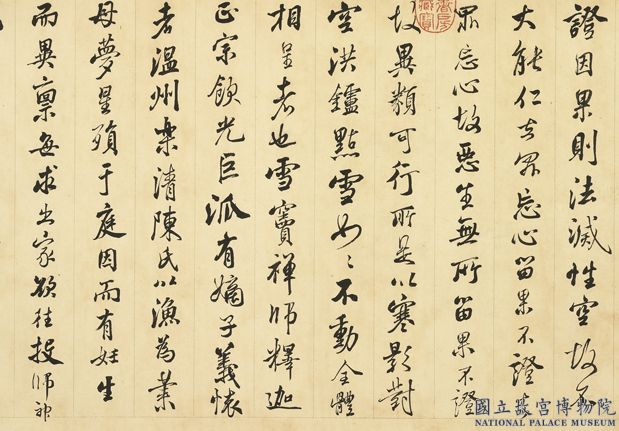 證因果則法滅性空故
大能仁忘心留果不證
忘心故惡生無所留果不證
故異類可行所是以寒影對
空洪鑪點雪如〻不動全體
相呈者也雪竇禪師釋迦
正宗領光巨派有嫡子義懷
者溫州樂清陳氏以漁為業
母夢星殞于庭因而有妊生
而異稟每求出家欲往投師
國立故宮博物院
NATIONAL PALACE MUSEUM